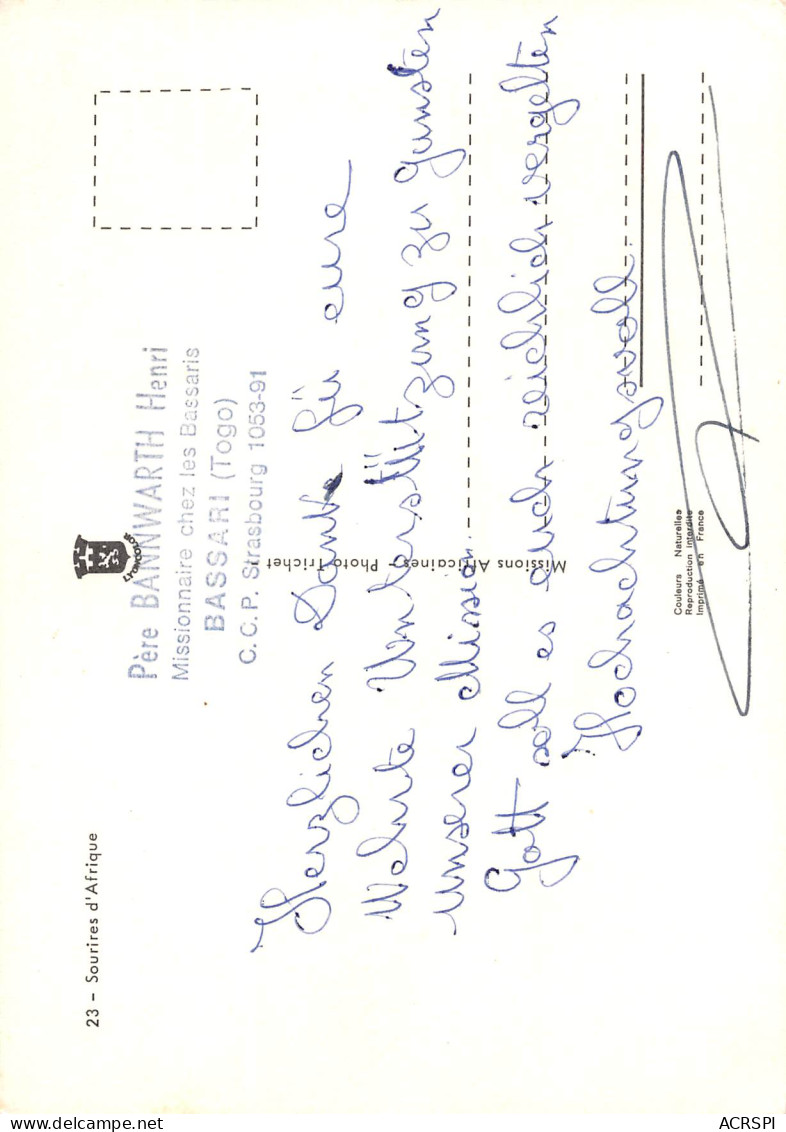 23 - Sourires d'Afrique
LYONCOLOR
Père BANNWARTH Henri
Missionnaire chez les Bassaris
BASSARI (Togo)
C.C.P. Strasbourg 1053-91
Herzlichen Dank für eure
Wehrte Unterstützung zu gunsten
unserer Mission.
Gott soll es euch reichlich vergelten
Hochachtungsvoll.
Missions Africaines - Photo Trichet
Couleurs Naturelles
Reproduction Interdite
Imprimé en France
ACRSPI